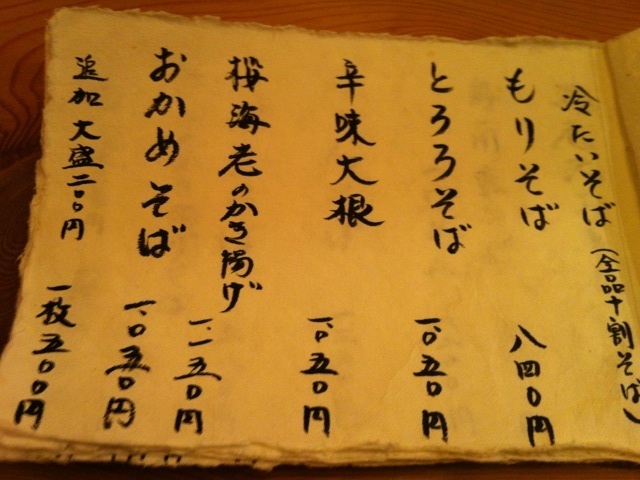 冷たいそば（全品十割そば）
もりそば 八四〇円
とろろそば 一、〇五〇円
辛味大根 一、〇五〇円
桜海老のかき揚げ 一、一五〇円
おかめそば 一、〇五〇円
追加 大盛二〇〇円 一枚五〇〇円